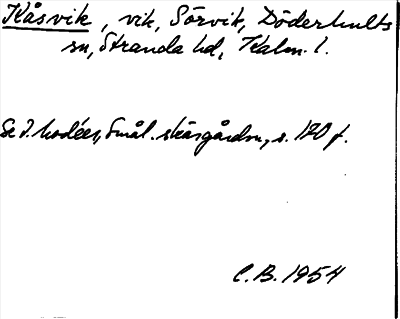 Kåsvik, vik, Sörvik, Döderhults
sn, Stranda hd, Kalm. l.
Se I. Modéer, Smål. skärgårdsn., s. 120 f.
C.B. 1954